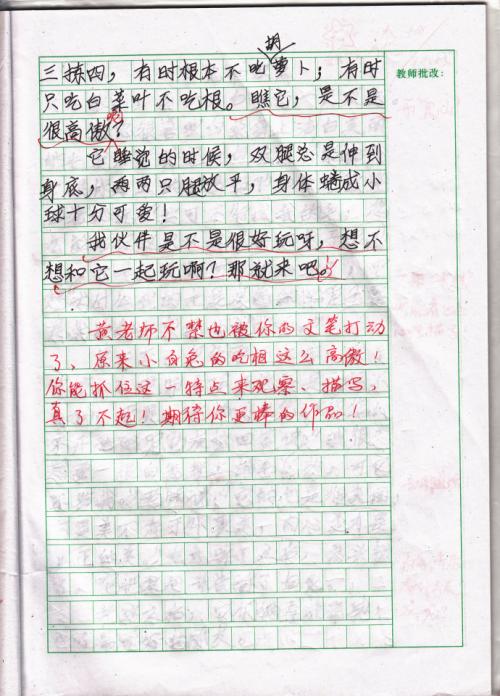 胡
三拣四，有时根本不吃萝卜；有时
教师批改：
只吃白菜叶不吃根。瞧它，是不是
呢
很高傲？
它睡觉的时候，双腿总是伸到
身底，两只腿放平，身体蜷成小
球十分可爱！
我伙伴是不是很好玩呀，想不
想和它一起玩啊？那就来吧。
黄老师不禁也被你的文笔打动
了，原来小白兔的吃相这么高傲！
你能抓住这一特点来观察、描写，
真了不起！期待你更棒的作品！